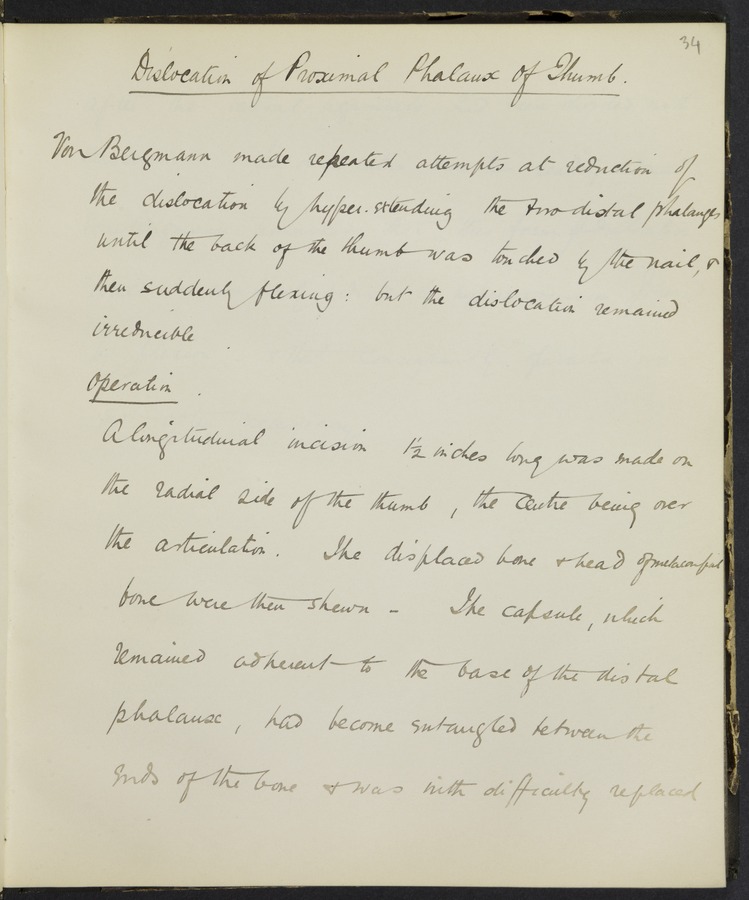 34
Dislocation of Proximal Phalanx of Thumb.
Von Bergmann made repeated attempts at reduction of
the dislocation by hyper-extending the two distal phalanges
until the back of the thumb was touched by the nail, &
then suddenly flexing: but the dislocation remained
irreducible.
Operation.
A longitudinal incision 1½ inches long was made on
the radial side of the thumb, the centre being over
the articulation. The displaced bone & head of metacarpal
bone were then shewn - The capsule, which
remained adherent to the base of the distal
phalanx, had become entangled between the
ends of the bone & was with difficulty replaced